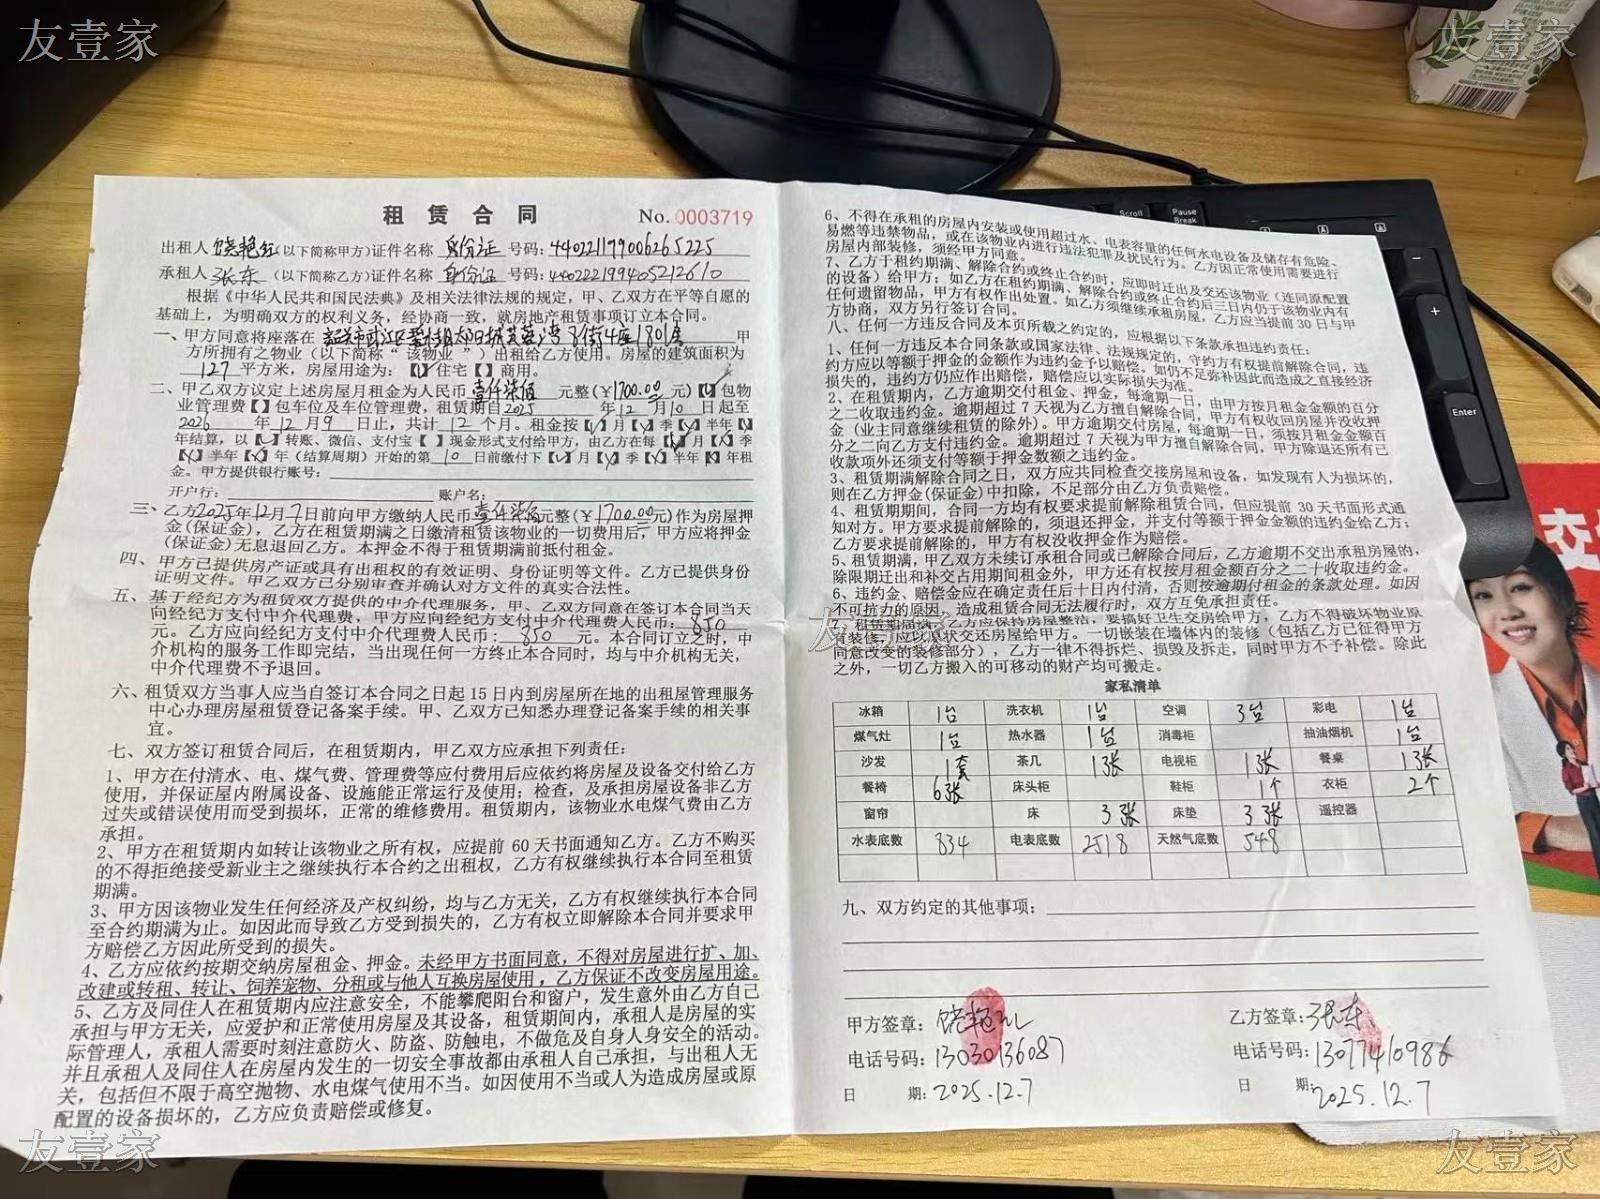 友壹家
友壹家
租 赁 合 同 No. 0003719
出租人 饶艳红 (以下简称甲方)证件名称 身份证 号码:
承租人 张东 (以下简称乙方)证件名称 身份证 号码:
根据《中华人民共和国民法典》及相关法律法规的规定，甲、乙双方在平等自愿的
基础上，为明确双方的权利义务，经协商一致，就房地产租赁事项订立本合同。
一、甲方同意将座落在 韶关市武江区 太阳城芙蓉湾8街4座1801房 甲
方所拥有之物业（以下简称“ 该物业 ”）出租给乙方使用。房屋的建筑面积为
127 平方米，房屋用途为：【√】住宅【 】商用。
二、甲乙双方议定上述房屋月租金为人民币 壹仟柒佰 元整(￥1700.00 元)【√】包物
业管理费【 】包车位及车位管理费，租赁期自2025 年 12 月 10 日起至
2026 年 12 月 9 日止，共计 12 个月。租金按【√】月【×】季【×】半年【×】
年结算，以【√】转账、微信、支付宝【 】现金形式支付给甲方，由乙方在每【√】月【×】季
【×】半年【×】年（结算周期）开始的第 10 日前缴付下【√】月【×】季【×】半年【×】年租
金。甲方提供银行账号：
开户行： 账户名：
三、乙方2025年12月7日前向甲方缴纳人民币壹仟柒佰元整(￥1700.00元)作为房屋押
金(保证金)，乙方在租赁期满之日缴清租赁该物业的一切费用后，甲方应将押金
(保证金)无息退回乙方。本押金不得于租赁期满前抵付租金。
四、甲方已提供房产证或具有出租权的有效证明、身份证明等文件。乙方已提供身份
证明文件。甲乙双方已分别审查并确认对方文件的真实合法性。
五、基于经纪方为租赁双方提供的中介代理服务，甲、乙双方同意在签订本合同当天
向经纪方支付中介代理费，甲方应向经纪方支付中介代理费人民币：850
元。乙方应向经纪方支付中介代理费人民币：850 元。本合同订立之时，中
介机构的服务工作即完结，当出现任何一方终止本合同时，均与中介机构无关，
中介代理费不予退回。
六、租赁双方当事人应当自签订本合同之日起 15 日内到房屋所在地的出租屋管理服务
中心办理房屋租赁登记备案手续。甲、乙双方已知悉办理登记备案手续的相关事
宜。
七、双方签订租赁合同后，在租赁期内，甲乙双方应承担下列责任：
1、甲方在付清水、电、煤气费、管理费等应付费用后应依约将房屋及设备交付给乙方
使用，并保证屋内附属设备、设施能正常运行及使用；检查，及承担房屋设备非乙方
过失或错误使用而受到损坏，正常的维修费用。租赁期内，该物业水电煤气费由乙方
承担。
2、甲方在租赁期内如转让该物业之所有权，应提前 60 天书面通知乙方。乙方不购买
的不得拒绝接受新业主之继续执行本合约之出租权，乙方有权继续执行本合同至租赁
期满。
3、甲方因该物业发生任何经济及产权纠纷，均与乙方无关，乙方有权继续执行本合同
至合约期满为止。如因此而导致乙方受到损失的，乙方有权立即解除本合同并要求甲
方赔偿乙方因此所受到的损失。
4、乙方应依约按期交纳房屋租金、押金。未经甲方书面同意，不得对房屋进行扩、加、
改建或转租、转让、饲养宠物、分租或与他人互换房屋使用，乙方保证不改变房屋用途。
5、乙方及同住人在租赁期内应注意安全，不能攀爬阳台和窗户，发生意外由乙方自己
承担与甲方无关，应爱护和正常使用房屋及其设备，租赁期间内，承租人是房屋的实
际管理人，承租人需要时刻注意防火、防盗、防触电，不做危及自身人身安全的活动。
并且承租人及同住人在房屋内发生的一切安全事故都由承租人自己承担，与出租人无
关，包括但不限于高空抛物、水电煤气使用不当。如因使用不当或人为造成房屋或原
配置的设备损坏的，乙方应负责赔偿或修复。
6、不得在承租的房屋内安装或使用超过水、电表容量的任何水电设备及储存有危险、
易燃等违禁物品，或在该物业内进行违法犯罪及扰民行为。乙方因正常使用需要进行
房屋内部装修，须经甲方同意。
7、乙方于租约期满、解除合约或终止合约时，应即时迁出及交还该物业（连同原配置
的设备）给甲方；如乙方在租约期满、解除合约或终止合约后三日内仍于该物业内有
任何遗留物品，甲方有权作出处置。如乙方须继续承租房屋。乙方应当提前 30 日与甲
方协商，双方另行签订合同。
八、任何一方违反合同及本页所载之约定的，应根据以下条款承担违约责任：
1、任何一方违反本合同条款或国家法律、法规规定的，守约方有权提前解除合同，违
约方应以等额于押金的金额作为违约金予以赔偿。如仍不足弥补因此而造成之直接经济
损失的，违约方仍应作出赔偿，赔偿应以实际损失为准。
2、在租赁期内，乙方逾期交付租金、押金，每逾期一日，由甲方按月租金金额的百分
之二收取违约金。逾期超过 7 天视为乙方擅自解除合同，甲方有权收回房屋并没收押
金（业主同意继续租赁的除外）。甲方逾期交付房屋，每逾期一日，须按月租金金额百
分之二向乙方支付违约金。逾期超过 7 天视为甲方擅自解除合同，甲方除退还所有已
收款项外还须支付等额于押金数额之违约金。
3、租赁期满解除合同之日，双方应共同检查交接房屋和设备，如发现有人为损坏的，
则在乙方押金(保证金)中扣除，不足部分由乙方负责赔偿。
4、租赁期期间，合同一方均有权要求提前解除租赁合同，但应提前 30 天书面形式通
知对方。甲方要求提前解除的，须退还押金，并支付等额于押金金额的违约金给乙方；
乙方要求提前解除的，甲方有权没收押金作为赔偿。
5、租赁期满，甲乙双方未续订承租合同或已解除合同后，乙方逾期不交出承租房屋的，
除限期迁出和补交占用期间租金外，甲方还有权按月租金额百分之二十收取违约金。
6、违约金、赔偿金应在确定责任后十日内付清，否则按逾期付租金的条款处理。如因
不可抗力的原因，造成租赁合同无法履行时，双方互免承担责任。
7、租赁期届满，乙方应保持房屋整洁，要搞好卫生交房给甲方，乙方不得破坏物业原
有装修，应以原状交还房屋给甲方。一切嵌装在墙体内的装修（包括乙方已征得甲方
同意改变的装修部分），乙方一律不得拆烂、损毁及拆走，同时甲方不予补偿。除此
之外，一切乙方搬入的可移动的财产均可搬走。
友壹家
家私清单
冰箱 1台 洗衣机 1台 空调 3台 彩电 1台
煤气灶 1台 热水器 1台 消毒柜 抽油烟机 1台
沙发 1套 茶几 1张 电视柜 1张 餐桌 1张
餐椅 6张 床头柜 鞋柜 1个 衣柜 2个
窗帘 床 3张 床垫 3张 遥控器
水表底数 834 电表底数 2518 天然气底数 548
九、双方约定的其他事项：
甲方签章：饶艳红 乙方签章：张东
电话号码：13030136087 电话号码：13077410986
日 期：2025.12.7 日 期：2025.12.7
Scroll
Pause
Break
Enter
交
友壹家
友壹家